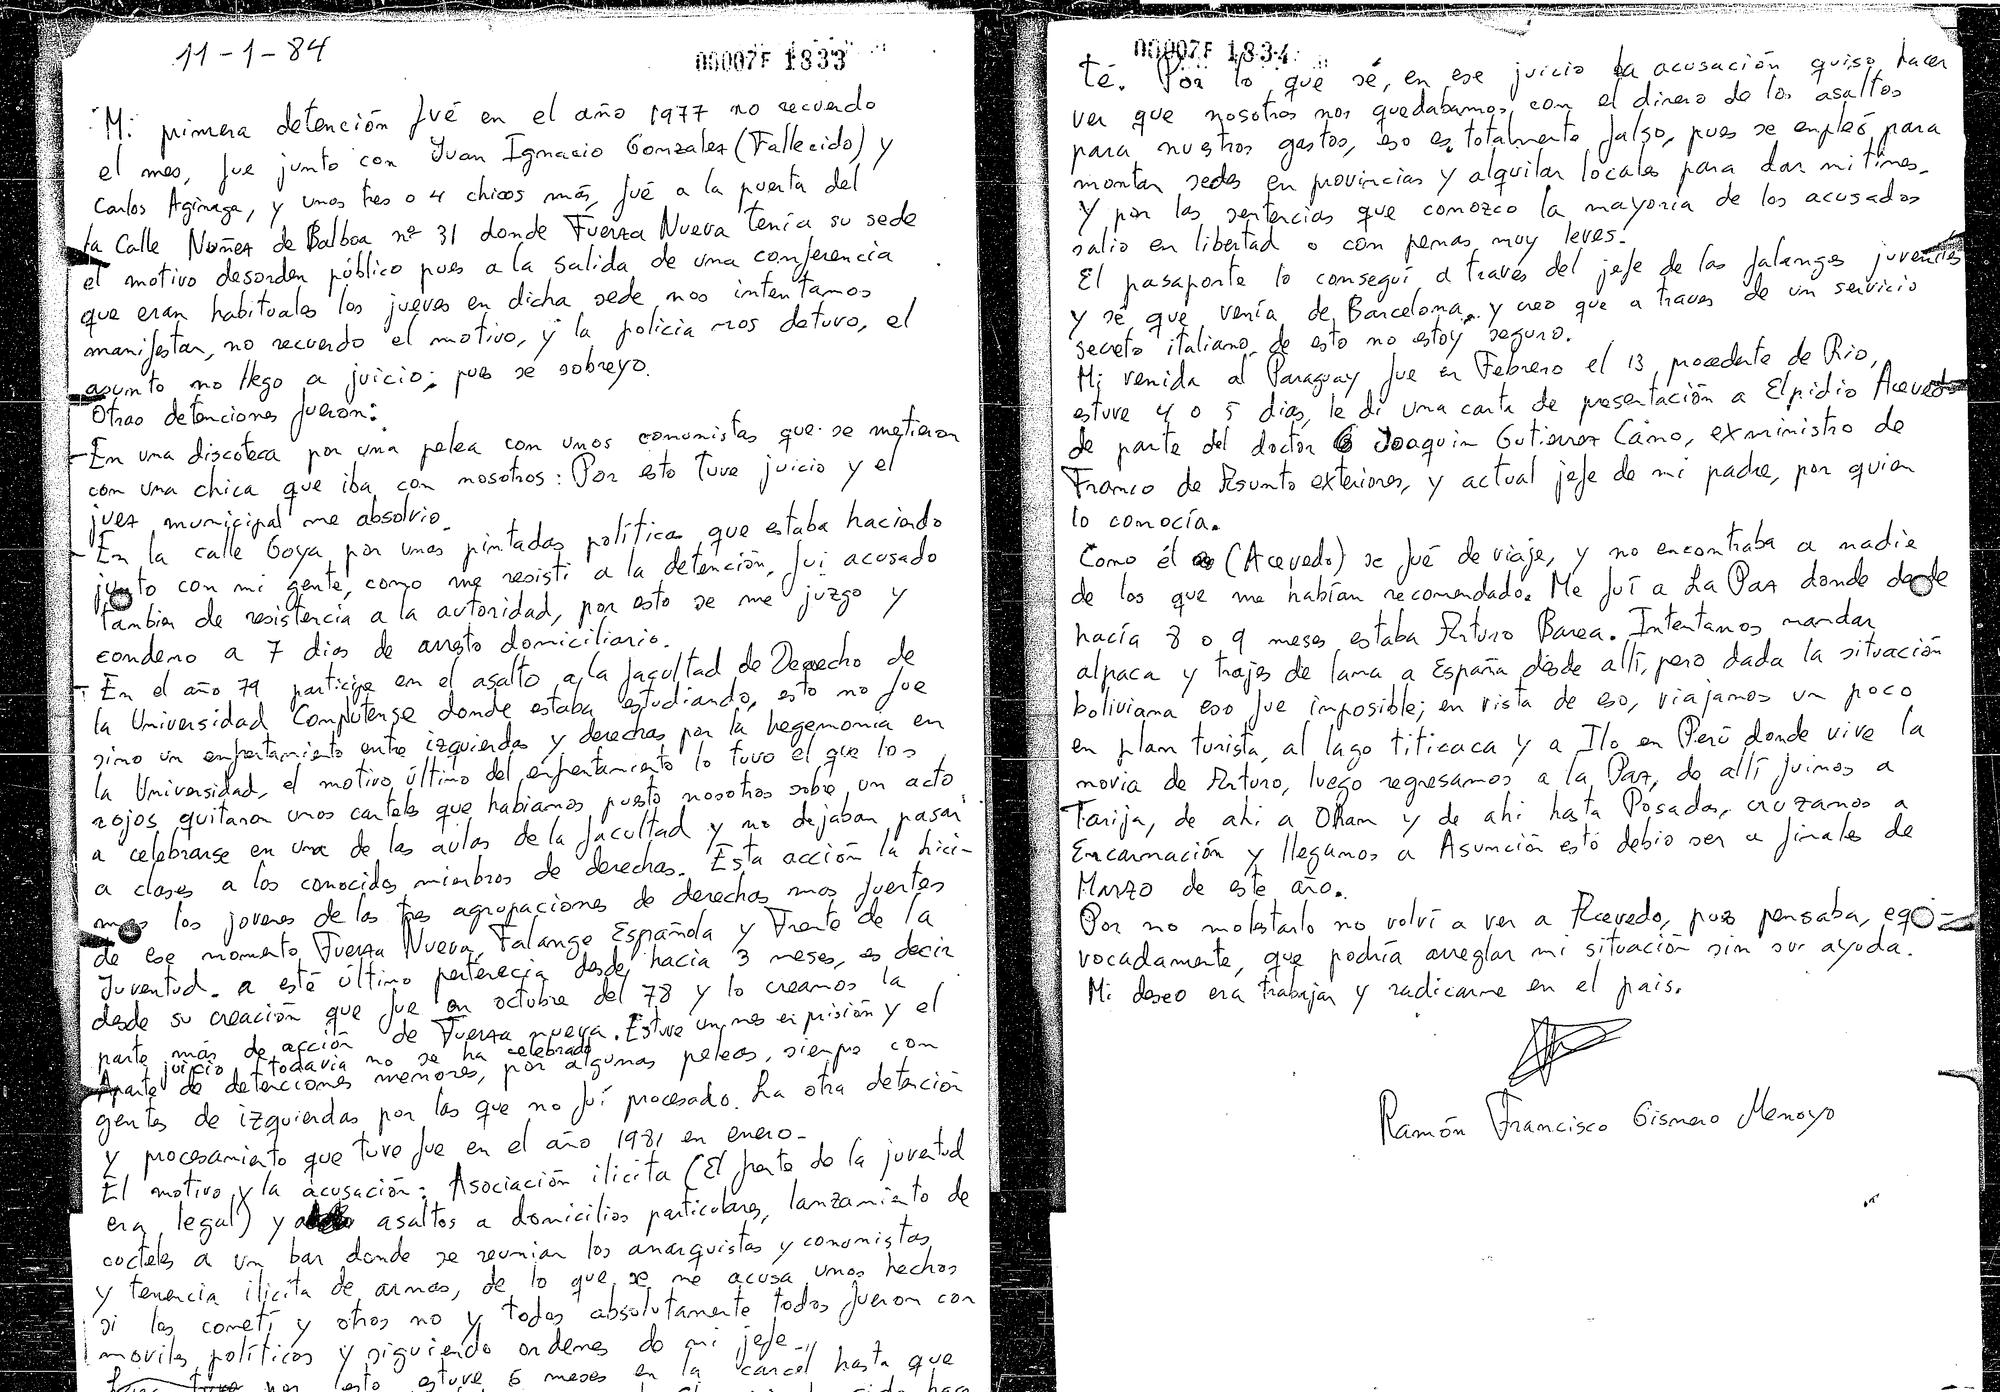 11-1-84
00007F 1833
Mi primera detención fué en el año 1977 no recuerdo
el mes, fue junto con Juan Ignacio Gonzalez (Fallecido) y
Carlos Aginaga, y unos tres o 4 chicos más, fué a la puerta del
la Calle Nuñez de Balboa nº 31 donde Fuerza Nueva tenía su sede
el motivo desorden público pues a la salida de una conferencia
que eran habituales los jueves en dicha sede nos intentamos
manifestar, no recuerdo el motivo, y la policia nos detuvo, el
asunto no llego a juicio; pues se sobreyo.
Otras detenciones fueron:
- En una discoteca por una pelea con unos comunistas que se metieron
con una chica que iba con nosotros: Por esto tuve juicio y el
juez municipal me absolvio.
- En la calle Goya por unas pintadas políticas que estaba haciendo
junto con mi gente, como me resisti a la detención, fui acusado
tambien de resistencia a la autoridad, por esto se me juzgo y
condeno a 7 dias de arresto domiciliario.
- En el año 79 participe en el asalto a la facultad de Derecho de
la Universidad Complutense donde estaba estudiando, esto no fue
sino un enfrentamiento entre izquierdas y derechas por la hegemonia en
la Universidad, el motivo último del enfrentamiento lo tuvo el que los
rojos quitaron unos carteles que habiamos puesto nosotros sobre un acto
a celebrarse en una de las aulas de la facultad y no dejaban pasar
a clases a los conocidos miembros de derechas. Esta acción la hici-
mos los jovenes de las tres agrupaciones de derechas mas fuertes
de ese momento Fuerza Nueva, Falange Española y Frente de la
Juventud. a esté último pertenecia desde hacia 3 meses, es decir
desde su creación que fue en octubre del 78 y lo creamos la
parte más de acción de Fuerza nueva. Estuve un mes en prisión y el
juicio todavia no se ha celebrado
Aparte de detenciones menores, por algunas peleas, siempre con
gentes de izquierdas por las que no fuí procesado. La otra detención
y procesamiento que tuve fue en el año 1981 en enero-
El motivo y la acusación: Asociación ilicita (El frente de la juventud
era legal) y asaltos a domicilios particulares, lanzamiento de
cocteles a un bar donde se reunian los anarquistas y comunistas
y tenencia ilicita de armas, de lo que se me acusa unos hechos
si los cometí y otros no y todos absolutamente todos fueron con
moviles políticos y siguiendo ordenes de mi jefe.
por esto estuve 6 meses en la carcel hasta que
00007F 1834
té. Por lo que sé, en ese juicio la acusación quiso hacer
ver que nosotros nos quedabamos con el dinero de los asaltos
para nuestros gastos, eso es totalmente falso, pues se empleó para
montar sedes en provincias y alquilar locales para dar mitines.
Y por las sentencias que conozco la mayoría de los acusados
salio en libertad o con penas muy leves.
El pasaporte lo conseguí a través del jefe de las falanges juveniles
y sé que venía de Barcelona, y creo que a traves de un servicio
secreto italiano, de esto no estoy seguro.
Mi venida al Paraguay fue en Febrero el 13 procedente de Rio,
estuve 4 o 5 dias, le di una carta de presentación a Elpidio Acevedo
de parte del doctor Joaquin Gutierrez Cano, exministro de
Franco de Asunto exteriores, y actual jefe de mi padre, por quien
lo conocía.
Como él (Acevedo) se fué de viaje, y no encontraba a nadie
de los que me habían recomendado. Me fuí a La Paz donde desde
hacía 8 o 9 meses estaba Arturo Barea. Intentamos mandar
alpaca y trajes de lama a España desde allí, pero dada la situación
boliviana eso fue imposible; en vista de eso, viajamos un poco
en plan turista, al lago titicaca y a Ilo en Perú donde vive la
novia de Arturo, luego regresamos a la Paz, de allí fuimos a
Tarija, de ahi a Oran y de ahi hasta Posadas, cruzamos a
Encarnación y llegamos a Asunción estó debio ser a finales de
Marzo de este año.
Por no molestarlo no volví a ver a Acevedo, pues pensaba, equi-
vocadamente, que podría arreglar mi situación sin su ayuda.
Mi deseo era trabajar y radicarme en el pais.
Ramón Francisco Gismero Menoyo